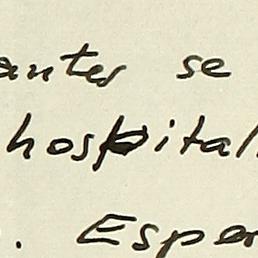 antes se
hospital
. Espe